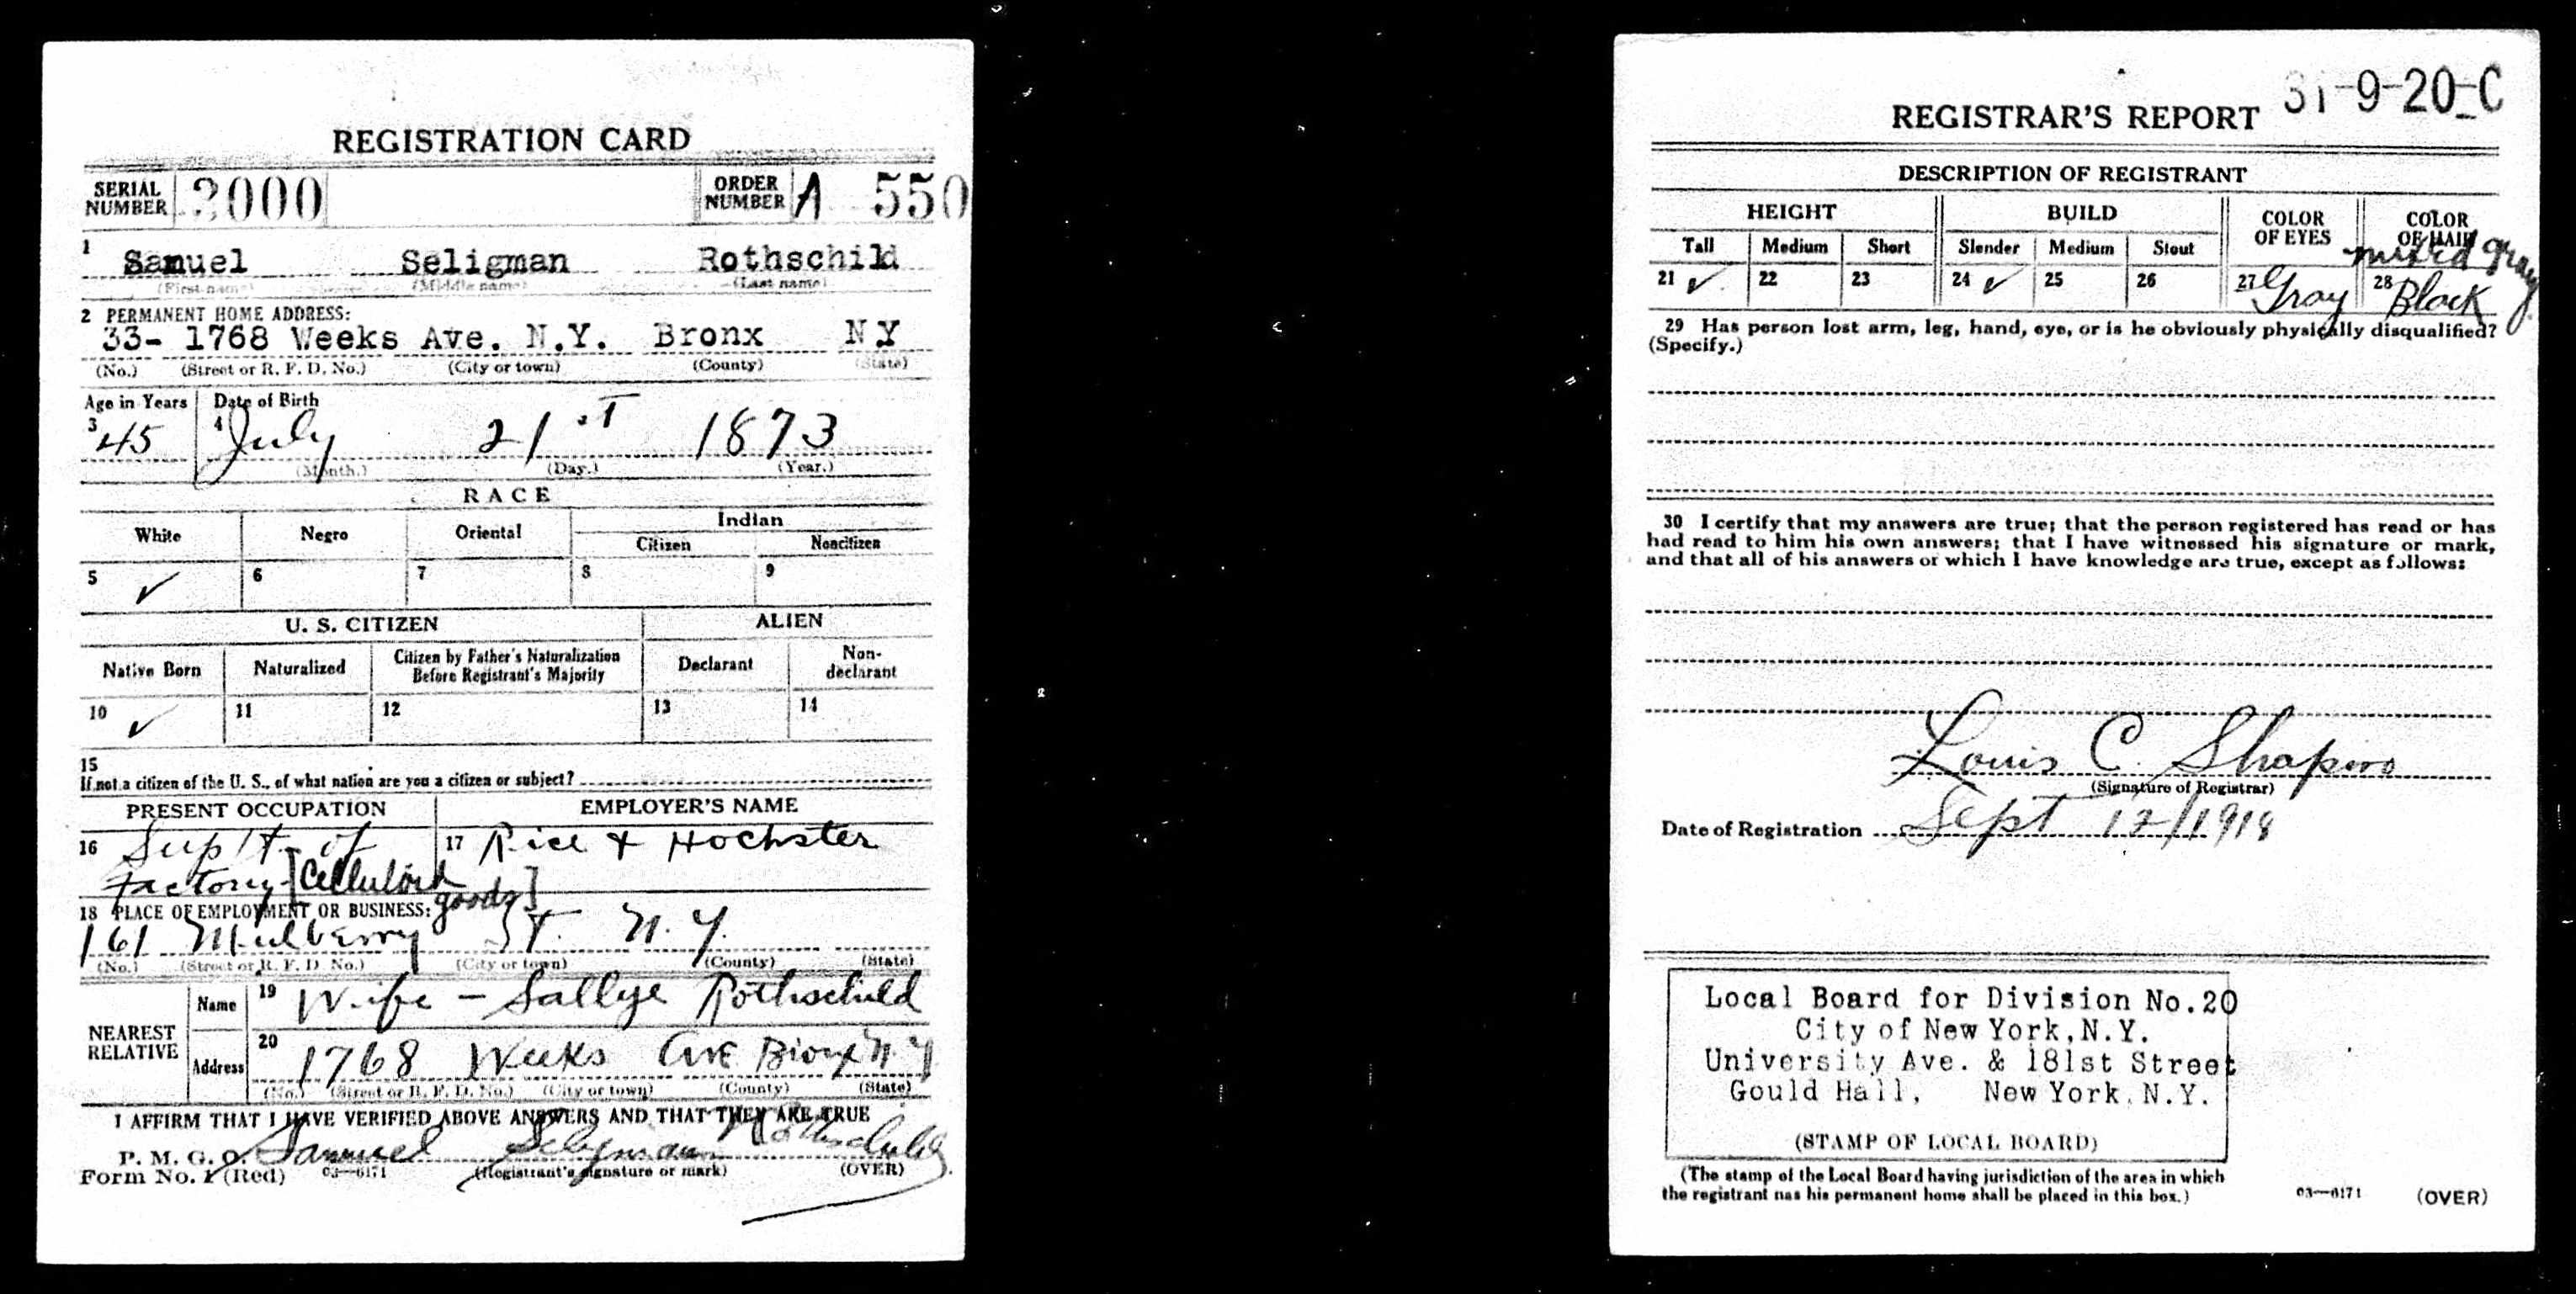 REGISTRATION CARD
SERIAL NUMBER 3000 ORDER NUMBER A 550
1 Samuel Seligman Rothschild
(First name) (Middle name) (Last name)
2 PERMANENT HOME ADDRESS:
33- 1768 Weeks Ave. N.Y. Bronx NY
(No.) (Street or R. F. D. No.) (City or town) (County) (State)
Age in Years Date of Birth
3 45 4 July 21ST 1873
(Month.) (Day.) (Year.)
RACE
White Negro Oriental Indian
Citizen Noncitizen
5 ✓ 6 7 8 9
U. S. CITIZEN ALIEN
Native Born Naturalized Citizen by Father's Naturalization Before Registrant's Majority Declarant Non-declarant
10 ✓ 11 12 13 14
15
If not a citizen of the U. S., of what nation are you a citizen or subject?
PRESENT OCCUPATION EMPLOYER'S NAME
16 Sup't of 17 Rice & Hochster
Factory [Celluloid goods]
18 PLACE OF EMPLOYMENT OR BUSINESS:
161 Mulberry St. N.Y.
(No.) (Street or R. F. D. No.) (City or town) (County) (State)
NEAREST RELATIVE
Name 19 Wife - Sallye Rothschild
Address 20 1768 Weeks Ave Bronx N.Y
(No.) (Street or R. F. D. No.) (City or town) (County) (State)
I AFFIRM THAT I HAVE VERIFIED ABOVE ANSWERS AND THAT THEY ARE TRUE
Samuel Seligman Rothschild
P. M. G. O.
Form No. 1 (Red) 03—6171 (Registrant's signature or mark) (OVER)
31-9-20-C
REGISTRAR'S REPORT
DESCRIPTION OF REGISTRANT
HEIGHT BUILD COLOR OF EYES COLOR OF HAIR
Tall Medium Short Slender Medium Stout
mixed gray
21 ✓ 22 23 24 ✓ 25 26 27 Gray 28 Black
29 Has person lost arm, leg, hand, eye, or is he obviously physically disqualified?
(Specify.)
30 I certify that my answers are true; that the person registered has read or has
had read to him his own answers; that I have witnessed his signature or mark,
and that all of his answers of which I have knowledge are true, except as follows:
Louis C. Shapiro
(Signature of Registrar)
Date of Registration Sept 12/1918
Local Board for Division No.20
City of New York, N.Y.
University Ave. & 181st Street
Gould Hall, New York, N.Y.
(STAMP OF LOCAL BOARD)
(The stamp of the Local Board having jurisdiction of the area in which
the registrant has his permanent home shall be placed in this box.)
03—6171 (OVER)